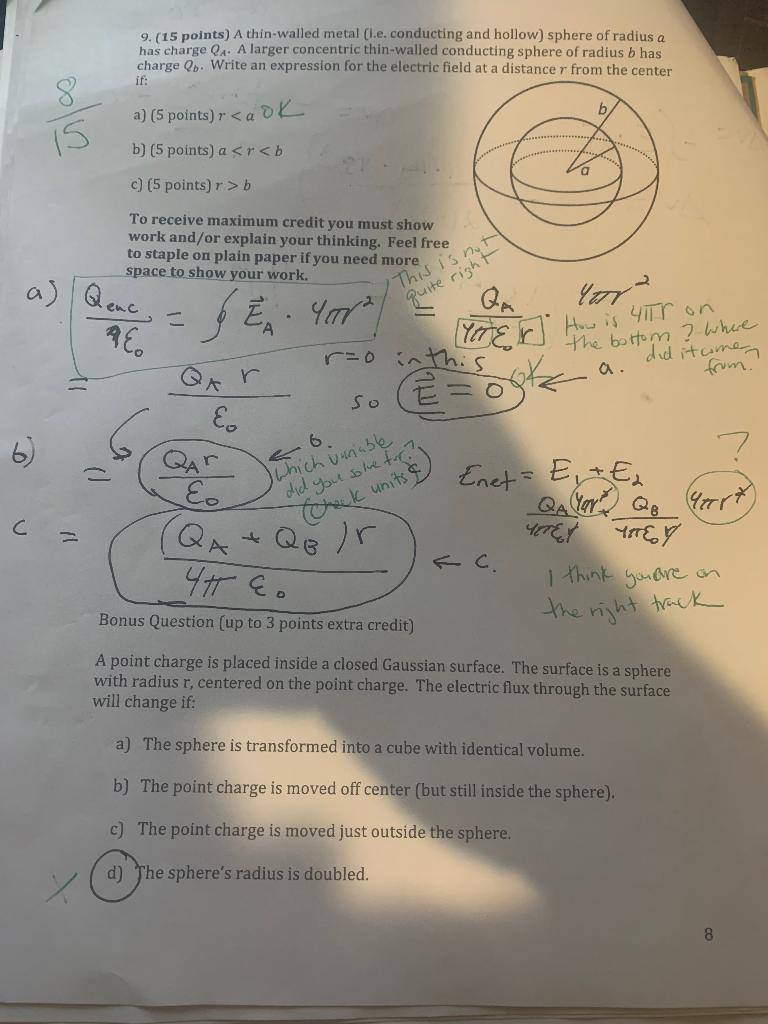 9. (15 points) A thin-walled metal (i.e. conducting and hollow) sphere of radius a
has charge Q_A. A larger concentric thin-walled conducting sphere of radius b has
charge Q_b. Write an expression for the electric field at a distance r from the center
if:
8/15
a) (5 points) r < a OK
b) (5 points) a < r < b
c) (5 points) r > b
b
a
To receive maximum credit you must show
work and/or explain your thinking. Feel free
to staple on plain paper if you need more
space to show your work.
This is not
quite right
a) Q_enc/ε₀ = ∮ E⃗_A · 4πr² = Q_A/(4πε₀r) · 4πr²
How is 4πr on
the bottom? Where
did it come
from?
= Q_A r/ε₀
r=0 in this
so E⃗ = 0 OK ← a.
b) = Q_A r/ε₀ ← b.
Which variable
did you solve for?
(Check units)
E_net = E₁ + E₂
Q_A 4πr²/4πε₀r + Q_B/4πε₀r 4πr² ?
c = (Q_A + Q_B)r/4πε₀ ← c.
I think you are on
the right track
Bonus Question (up to 3 points extra credit)
A point charge is placed inside a closed Gaussian surface. The surface is a sphere
with radius r, centered on the point charge. The electric flux through the surface
will change if:
a) The sphere is transformed into a cube with identical volume.
b) The point charge is moved off center (but still inside the sphere).
c) The point charge is moved just outside the sphere.
X d) The sphere's radius is doubled.
8